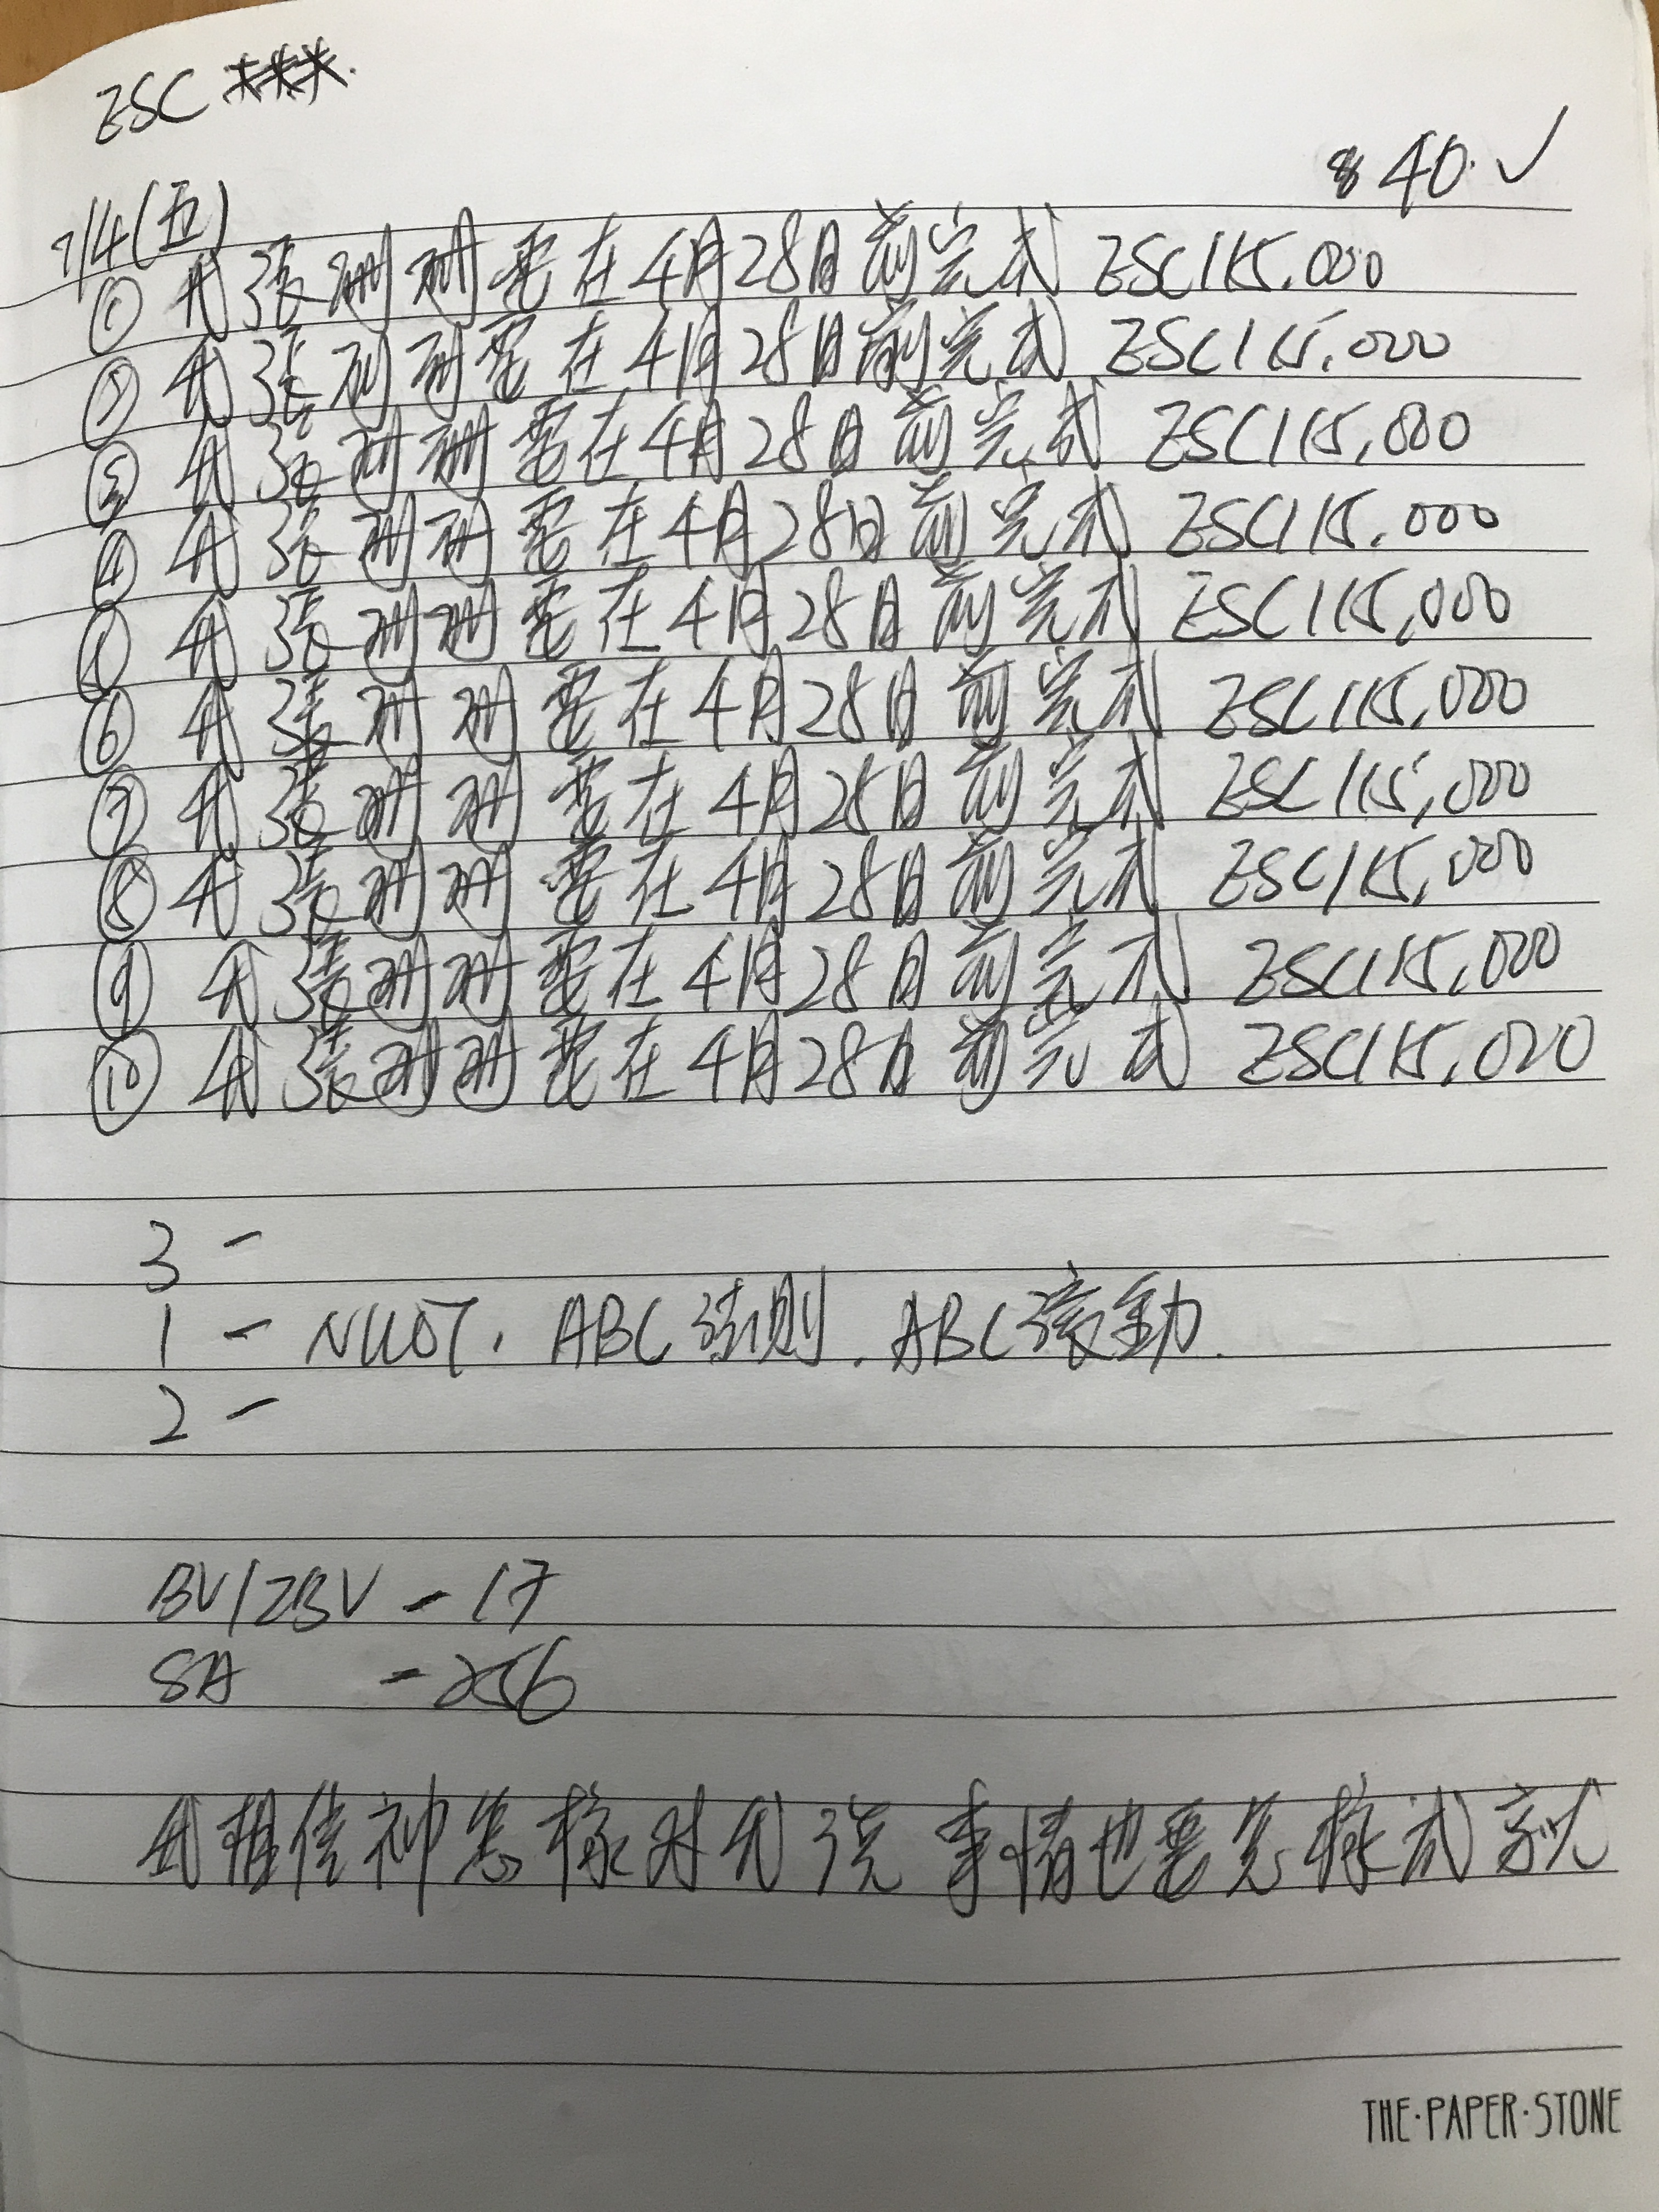 ESC ***.
40. ✓
7/4(五)
① 我張珊珊要在4月28日前完成 ESC115.000
② 我張珊珊要在4月28日前完成 ESC115.000
③ 我張珊珊要在4月28日前完成 ESC115,000
④ 我張珊珊要在4月28日前完成 ESC115.000
⑤ 我張珊珊要在4月28日前完成 ESC115,000
⑥ 我張珊珊要在4月28日前完成 ESC115,000
⑦ 我張珊珊要在4月28日前完成 ESC115,000
⑧ 我張珊珊要在4月28日前完成 ESC115,000
⑨ 我張珊珊要在4月28日前完成 ESC115,000
⑩ 我張珊珊要在4月28日前完成 ESC115,000
3 -
1 - NUOT. ABC法則. ABC滾動.
2 -
BV/IBV - 17
SA - 256
我相信神怎樣對我說 事情也要怎樣成就
THE·PAPER·STONE